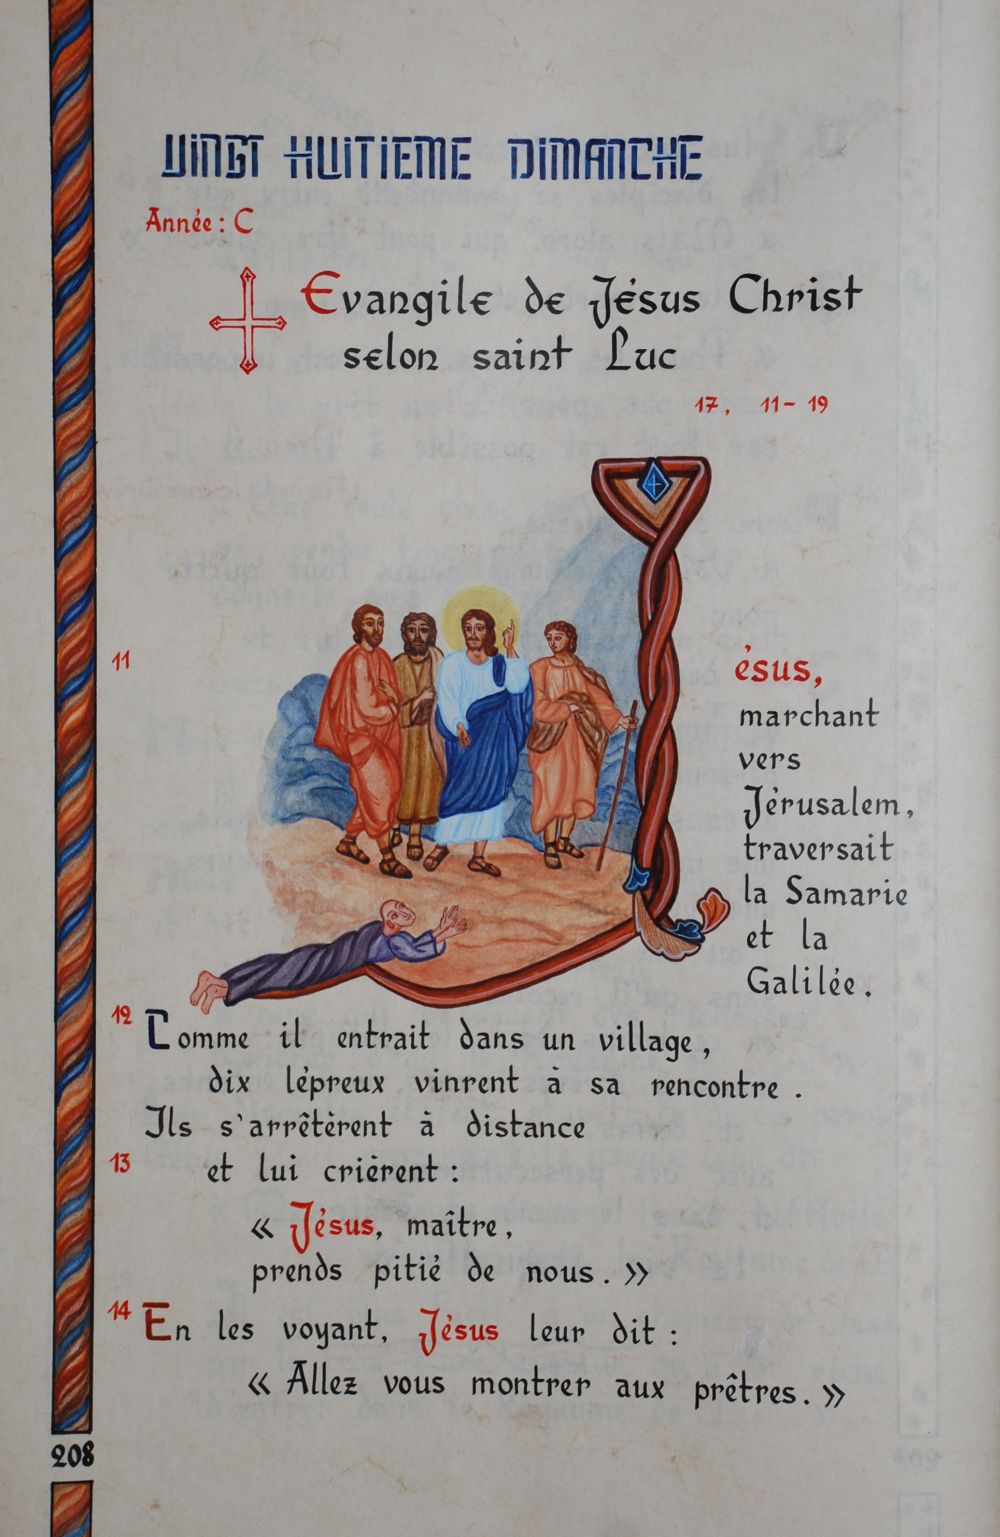 VINGT HUITIEME DIMANCHE
Année : C
Evangile de Jésus Christ
selon saint Luc
17, 11-19
11
Jésus,
marchant
vers
Jérusalem,
traversait
la Samarie
et la
Galilée.
12 Comme il entrait dans un village,
dix lépreux vinrent à sa rencontre.
Ils s'arrêtèrent à distance
13 et lui crièrent :
« Jésus, maître,
prends pitié de nous. »
14 En les voyant, Jésus leur dit :
« Allez vous montrer aux prêtres. »
208